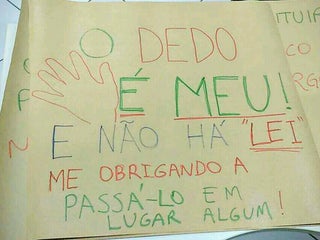 O DEDO
É MEU!
E NÃO HÁ "LEI"
ME OBRIGANDO A
PASSÁ-LO EM
LUGAR ALGUM!